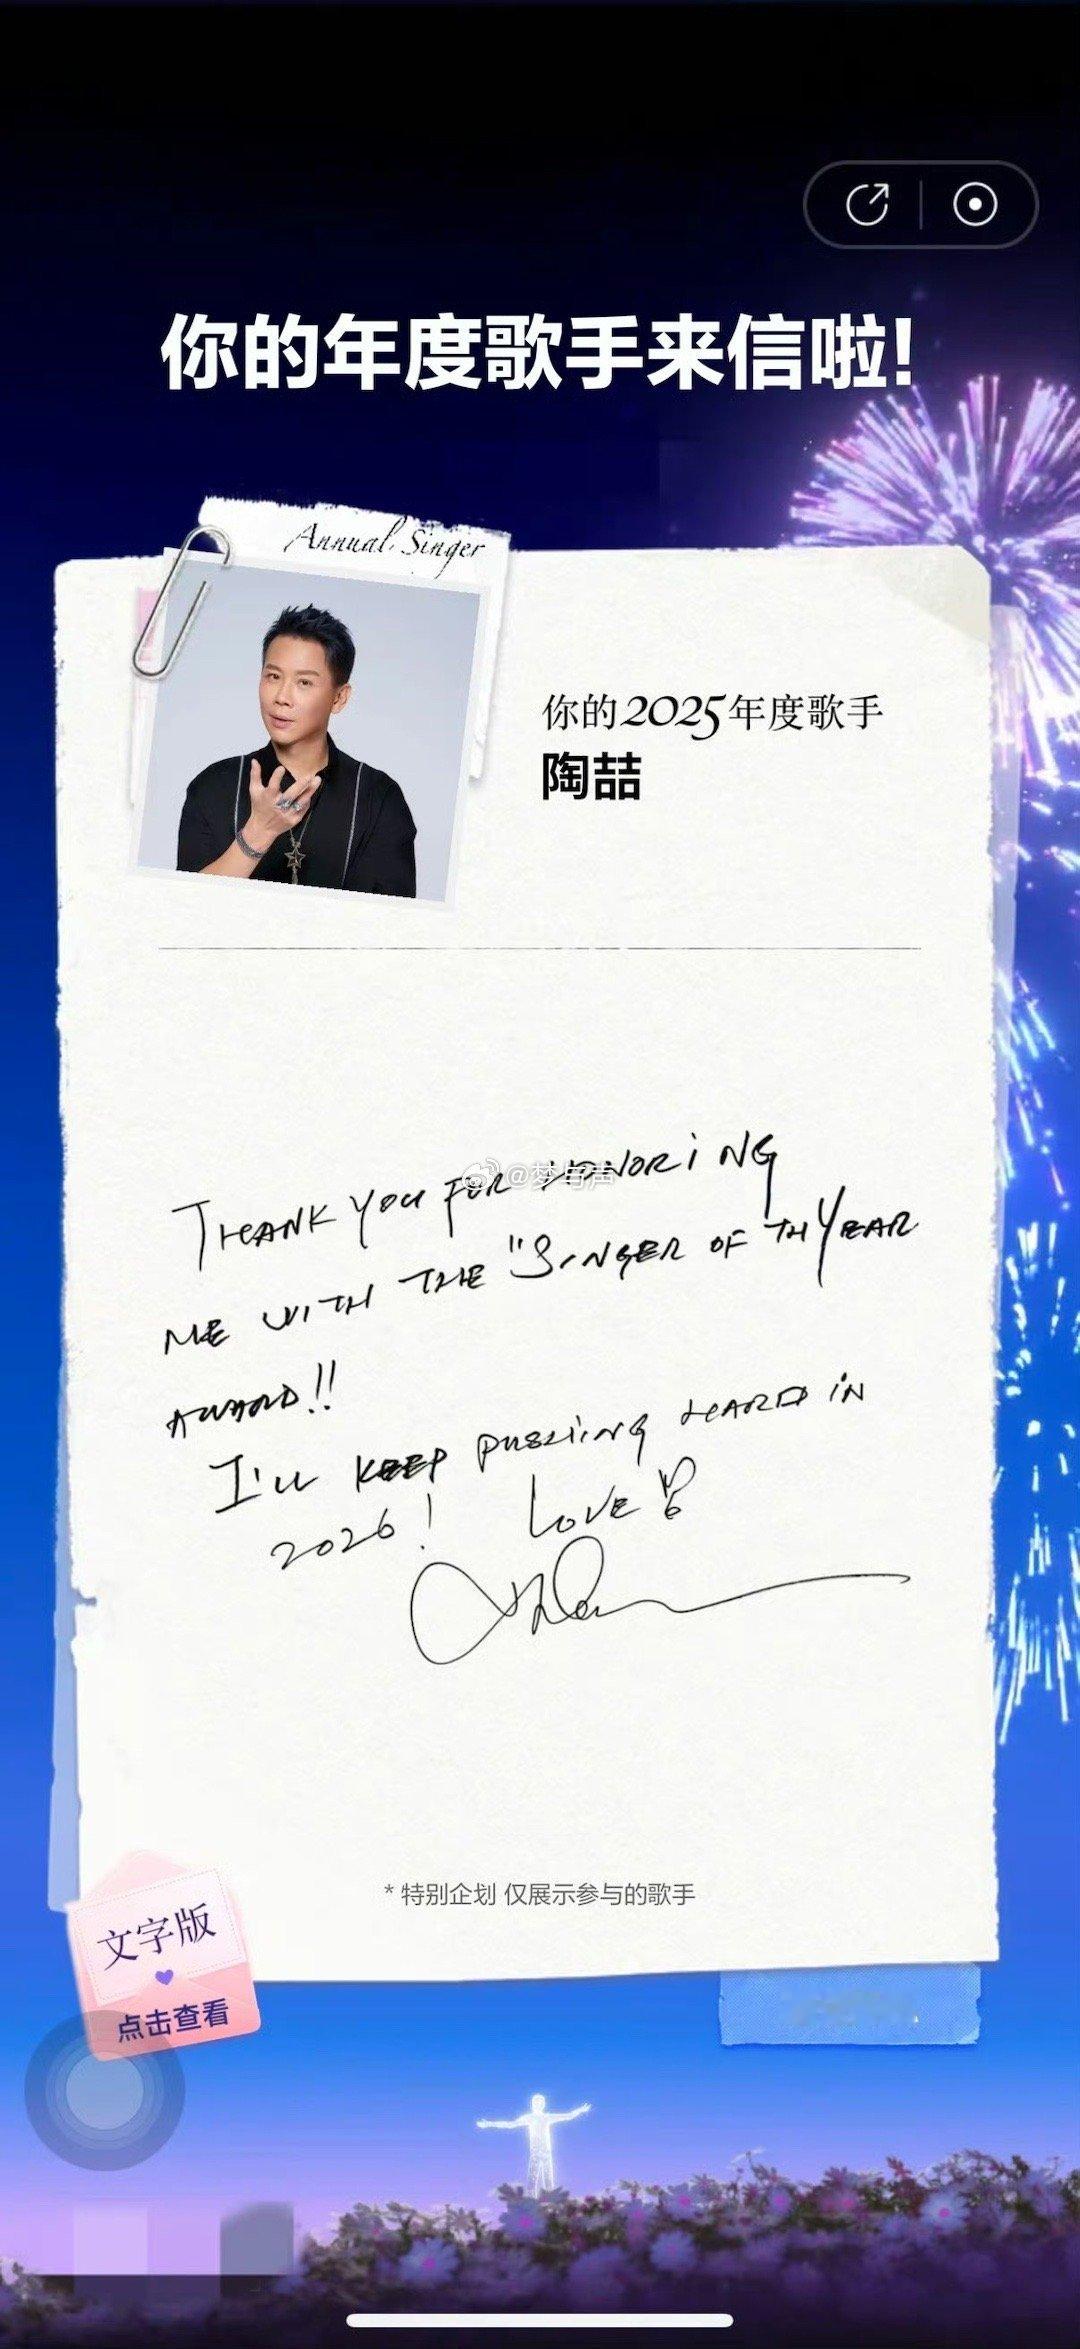 你的年度歌手来信啦!
Annual Singer
你的2025年度歌手
陶喆
THANK YOU FOR HONORING
@梦与声
ME WITH THE "SINGER OF TH YEAR
AWARD!!
I'LL KEEP PUSHING HARD IN
2026! LOVE
* 特别企划 仅展示参与的歌手
文字版
点击查看